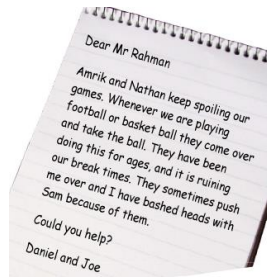 Dear Mr Rahman
Amrik and Nathan keep spoiling our
games. Whenever we are playing
football or basket ball they come over
and take the ball. They have been
doing this for ages, and it is ruining
our break times. They sometimes push
me over and I have bashed heads with
Sam because of them.
Could you help?
Daniel and Joe